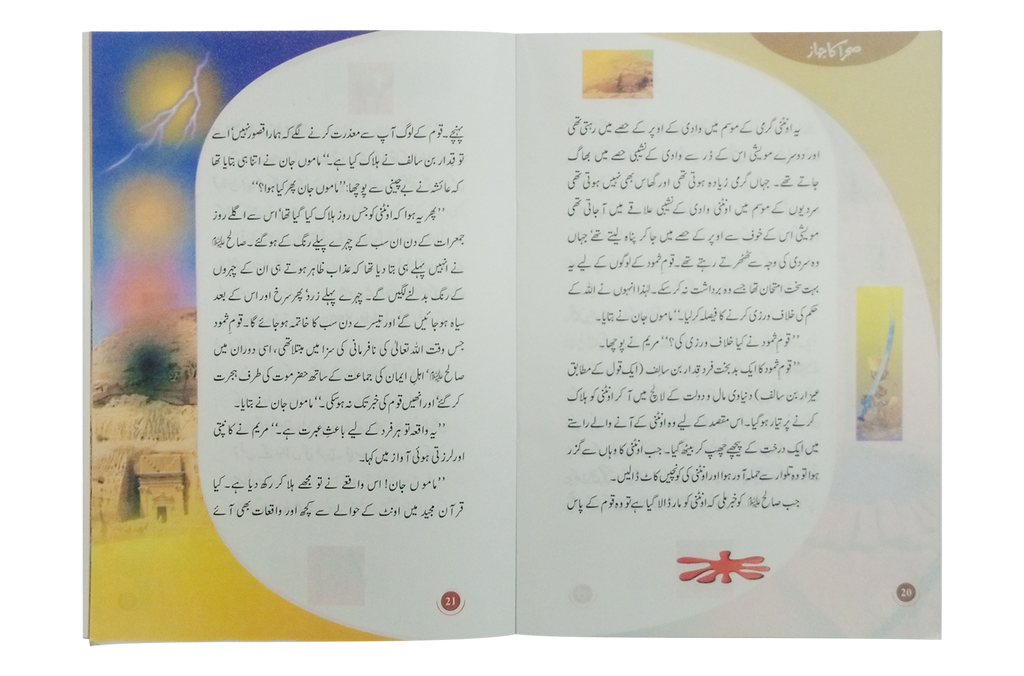 صحرا کا جہاز
یہ اونٹنی گرمی کے موسم میں وادی کے اوپر کے حصے میں رہتی تھی
اور دوسرے مویشی اس کے ڈر سے وادی کے نشیبی حصے میں بھاگ
جاتے تھے۔ جہاں گرمی زیادہ ہوتی تھی اور گھاس بھی نہیں ہوتی تھی
سردیوں کے موسم میں اونٹنی وادی کے نشیبی علاقے میں آ جاتی تھی
مویشی اس کے خوف سے اوپر کے حصے میں جا کر پناہ لیتے تھے‘ جہاں
وہ سردی کی وجہ سے ٹھٹھرتے رہتے تھے۔ قوم ثمود کے لوگوں کے لیے یہ
بہت سخت امتحان تھا جسے وہ برداشت نہ کر سکے۔ لہٰذا انہوں نے اللہ کے
حکم کی خلاف ورزی کرنے کا فیصلہ کر لیا۔‘‘ ماموں جان نے بتایا۔
’’قوم ثمود نے کیا خلاف ورزی کی؟‘‘ مریم نے پوچھا۔
’’قوم ثمود کا ایک بدبخت فرد قدار بن سالف (ایک قول کے مطابق
عیزار بن سالف) دنیاوی مال و دولت کے لالچ میں آ کر اونٹنی کو ہلاک
کرنے پر تیار ہو گیا۔ اس مقصد کے لیے وہ اونٹنی کے آنے والے راستے
میں ایک درخت کے پیچھے چھپ کر بیٹھ گیا۔ جب اونٹنی کا وہاں سے گزر
ہوا تو وہ تلوار سے حملہ آور ہوا اور اونٹنی کی کونچیں کاٹ ڈالیں۔
جب صالح علیہ السلام کو خبر ملی کہ اونٹنی کو مار ڈالا گیا ہے تو وہ قوم کے پاس
20
پہنچے۔ قوم کے لوگ آپ سے معذرت کرنے لگے کہ ہمارا قصور نہیں‘ اسے
تو قِدار بن سالف نے ہلاک کیا ہے۔‘‘ ماموں جان نے اتنا ہی بتایا تھا
کہ عائشہ نے بے چینی سے پوچھا: ’’ماموں جان پھر کیا ہوا؟‘‘
’’پھر یہ ہوا کہ اونٹنی کو جس روز ہلاک کیا گیا تھا‘ اس سے اگلے روز
جمعرات کے دن ان سب کے چہرے پیلے رنگ کے ہو گئے۔ صالح علیہ السلام
نے انہیں پہلے ہی بتا دیا تھا کہ عذاب ظاہر ہوتے ہی ان کے چہروں
کے رنگ بدلنے لگیں گے۔ چہرے پہلے زرد‘ پھر سرخ اور اس کے بعد
سیاہ ہو جائیں گے‘ اور تیسرے دن سب کا خاتمہ ہو جائے گا۔ قومِ ثمود
جس وقت اللہ تعالیٰ کی نافرمانی کی سزا میں مبتلا تھی، اسی دوران میں
صالح علیہ السلام‘ اہلِ ایمان کی جماعت کے ساتھ حضرموت کی طرف ہجرت
کر گئے‘ اور انھیں قوم کی خبر تک نہ ہو سکی۔‘‘ ماموں جان نے بتایا۔
’’یہ واقعہ تو ہر فرد کے لیے باعثِ عبرت ہے۔‘‘ مریم نے کانپتی
اور لرزتی ہوئی آواز میں کہا۔
’’ماموں جان! اس واقعے نے تو مجھے ہلا کر رکھ دیا ہے۔ کیا
قرآن مجید میں اونٹ کے حوالے سے کچھ اور واقعات بھی آئے
21